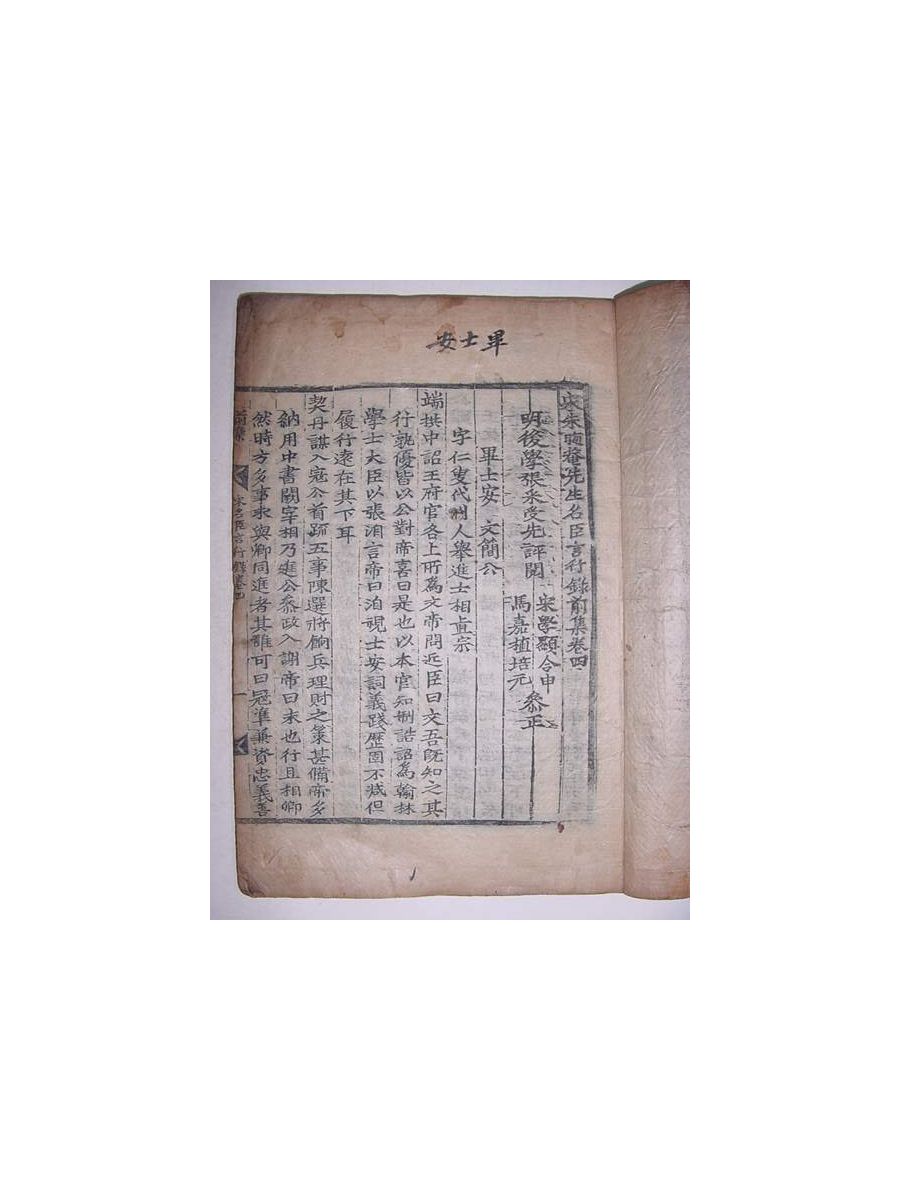 畢士安
宋朱晦菴先生名臣言行錄前集卷四
明後學張采受先評閱 宋學顯令申 馬嘉植培元 叅正
畢士安 文簡公
字仁叟代州人舉進士相眞宗
端拱中詔王府官各上所爲文帝問近臣曰文吾旣知之其
行孰優皆以公對帝喜曰是也以本官知制誥詔爲翰林
學士大臣以張洎言帝曰洎視士安詞義踐歷固不减但
履行遠在其下耳
契丹謀入寇公首疏五事陳選將餉兵理財之策甚備帝多
納用中書闕宰相乃進公叅政入謝帝曰未也行且相卿
然時方多事求與卿同進者其誰可曰冦準兼資忠義善
前集 宋名臣言行錄卷四 一